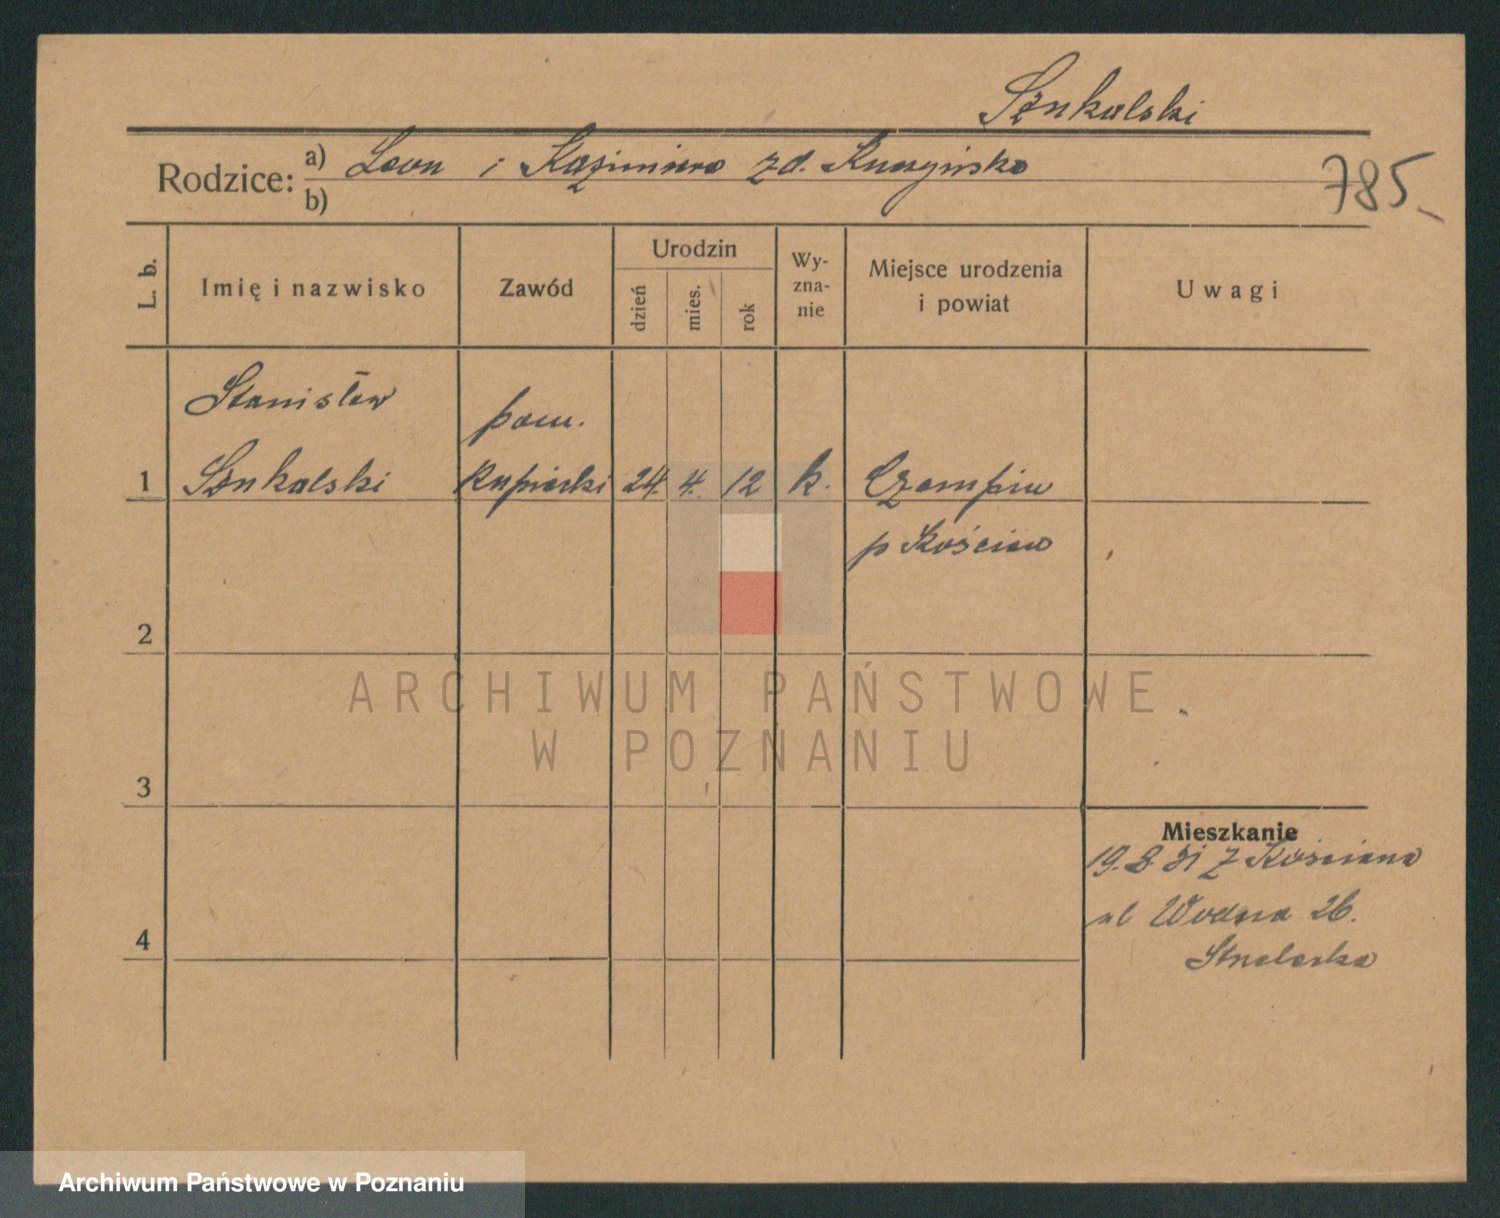 Sznkalski
Rodzice: a) Leon i Kazimiera zd.
785
b)
L. b.
Imię i nazwisko
Zawód
Urodzin
dzień
mies.
rok
Wy-
zna-
nie
Miejsce urodzenia
i powiat
Uwagi
Stanisław
pom.
1 Sznkalski kupiecki 24. 4. 12 k. Czempiń
p Kościan
2
ARCHIWUM PAŃSTWOWE
W POZNANIU
3
Mieszkanie
19. 8. 31 z Kościana
ul Wodna 26.
4
Archiwum Państwowe w Poznaniu